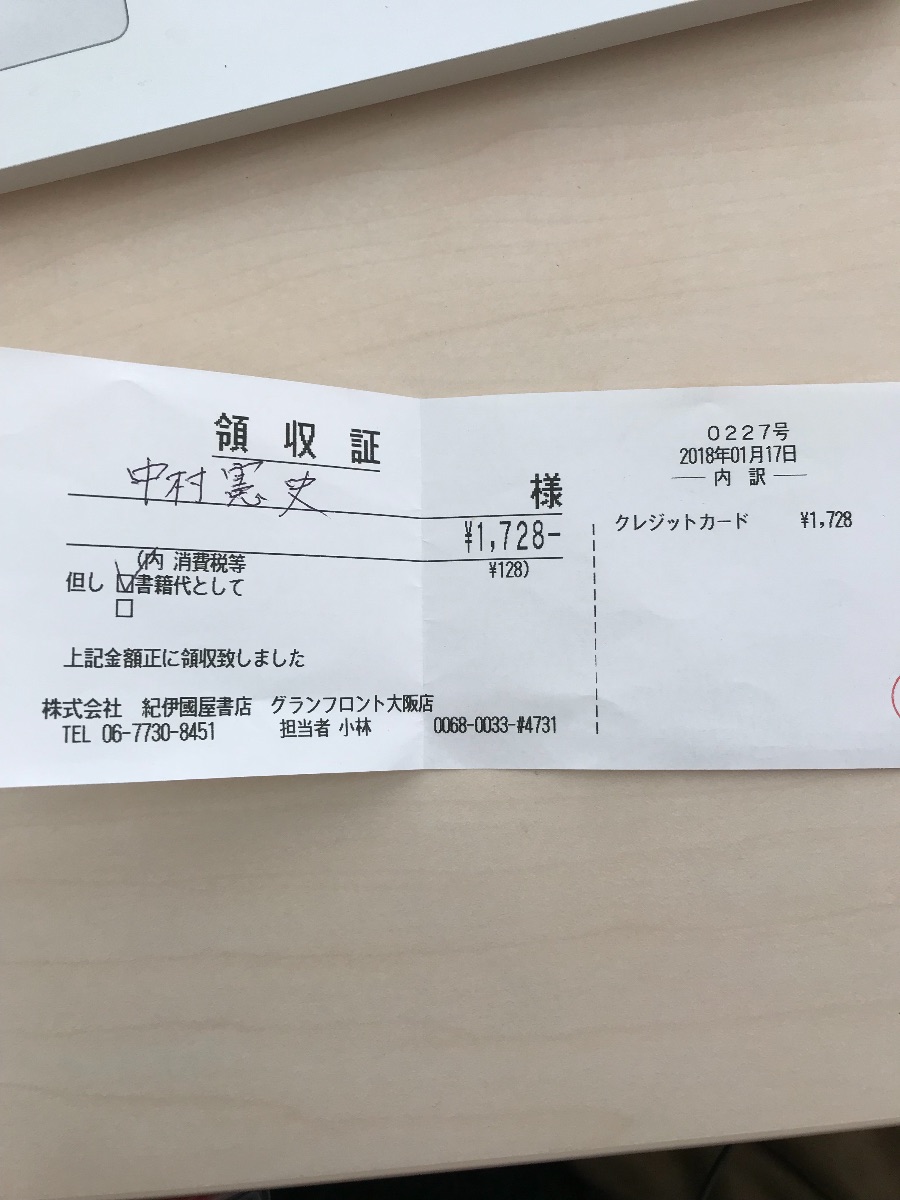 領収証
中村憲史 様
¥1,728-
(内 消費税等 ¥128)
但し ☑書籍代として
□
上記金額正に領収致しました
株式会社 紀伊國屋書店 グランフロント大阪店
TEL 06-7730-8451 担当者 小林 0068-0033-#4731
0227号
2018年01月17日
内 訳
クレジットカード ¥1,728